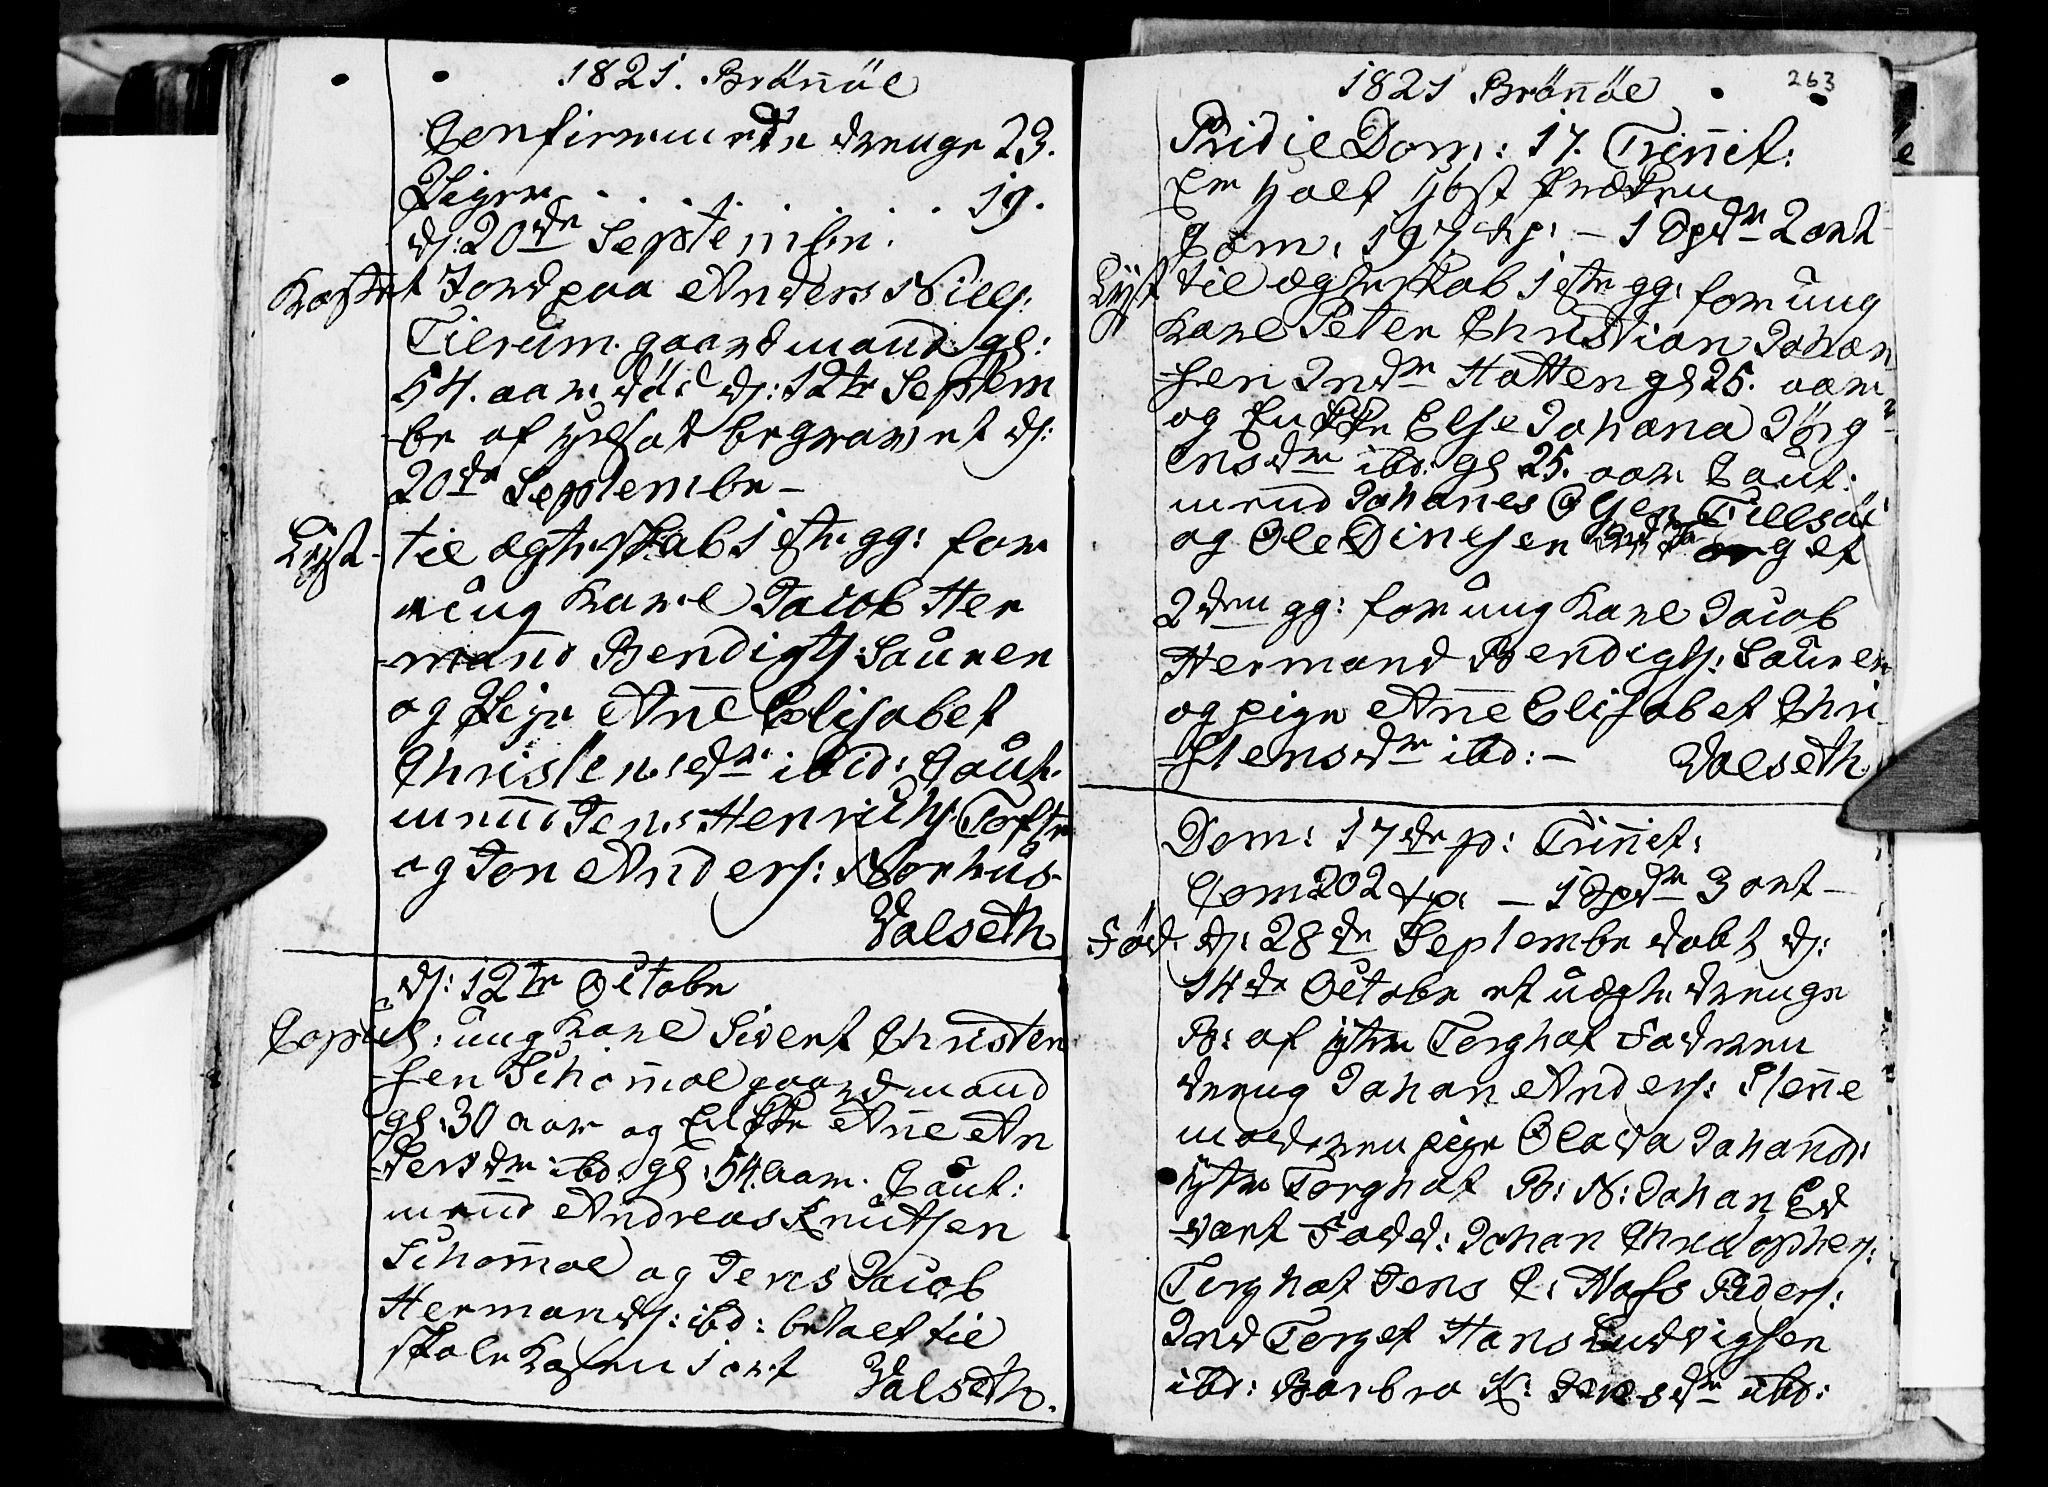 1821. Brönöe
Confirmerede drenge 23.
Piger . . . . . . . 19.
d: 20de September.
Kastet Jord paa Anders Nills:
Tilrum gaardmand gl:
54. aar død d: 12te Septem
-ber af begravet d:
20de September –
Lyst - til ægteskab 1ste gg: for
ung Karl Jacob Her
-mand Bendigts: Sauren
og Pige Anne Elisabet
Christensdr ibid: Caut.
mend Jens Henrichs: Tofte
og Jon Anders: Norhus-
Valseth
d: 12te October
Copul: ung Karl Sivert Christen
-sen Schomoe gaardmand
gl: 30 aar og Enke Anne An
-dersdr ibd: gl: 54 aar. Caut:
mend Andreas Knutsen
Schomoe og Jens Jacob
Hermands: ibd: betalt til
skole Kassen 1 ort Valseth.
1821 Brönöe 263
Pridie Dom: 17. Trinit:
En halt høst Præken
Com: 197 dp: – 1 Spdr 2 ort
Lyst til ægteskab 1ste gg: for ung
Karl Peter Christian Johan
-sen Inder Hatten gl 25. aar
og Enke Else Johana Jörg
ensdr ibd: gl 25. aar Caut:
mend Johanes Olsen Tillsöe
og Ole Dinesen Ind Torget
2den gg: for ung Karl Jacob
Hermand Bendigts: Sauren
og pige Anne Elisabet Chri
-stensdr ibd: – Valseth
Dom: 17de p: Trinit:
Com 202 dp. – 1 Spdr 3 ort –
Fød. d: 28de September døbt d:
14de October et uægte drenge
B: af ytre Torghat Faderen
dreng Johan Anders: Stene
moderen pige Olava Johansd:
ytre Torghat B: N: Johan Ed
-vart Fadd: Johan Christophers:
Torghat Jens C: Hofs Peders:
Ind Torget Hans Ludvigsen
ibd: Barbro K: Jensdr ibd: